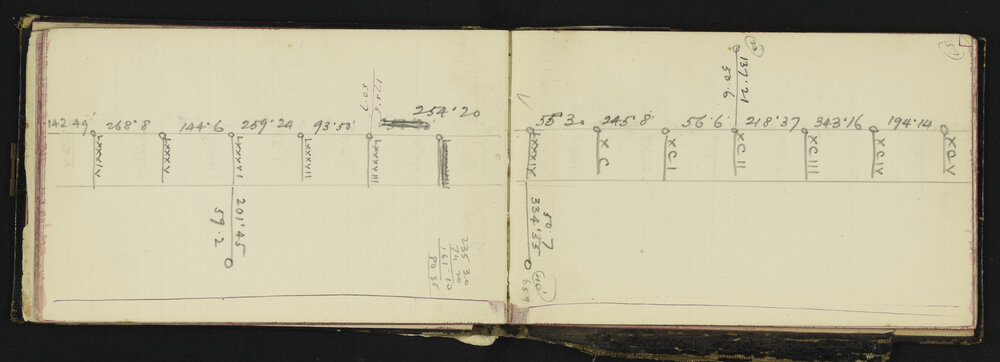 142.49' 268'8 144'6 259'24 93'50' 254'20
LXXXIV LXXXV LXXXVI LXXXVII LXXXVIII
201'45
59.2
50.7
235 30
74 20
161.10
55 30 245'8 56'6 218'37 343'16 194'14
LXXXIX XC XCI XCII XCIII XCIV XCV
137'21
50.6
334'35
50.7